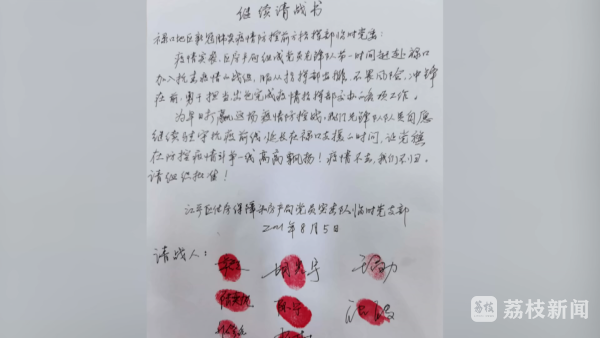 继续请战书
禄口地区新冠肺炎疫情防控前方指挥部临时党委：
疫情突袭，区房产局组成党员先锋队第一时间赶赴禄口
加入抗击疫情一线，服从指挥部安排，不畏风险，冲锋
在前，勇于担当出色完成疫情指挥部交办的各项工作。
为早日打赢这场疫情防控战，我们先锋队队员自愿
继续驻守抗疫前线，延长在禄口支援的时间，让党旗
在防控疫情斗争一线高高飘扬！疫情不去，我们不归。
请组织批准！
江宁区住房保障和房产局党员突击队临时党支部
2021年8月5日
请战人：
荔枝
荔枝新闻